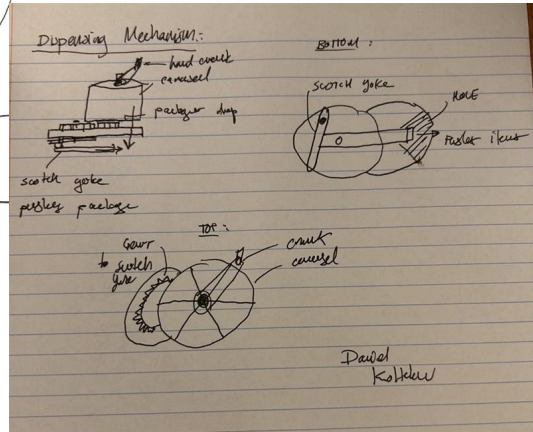 Dispensing Mechanism:
hand crank
carousel
package drop
scotch yoke
pushes package
BOTTOM:
scotch yoke
HOLE
Pushes items
TOP:
Gear
to scotch
yoke
crank
carousel